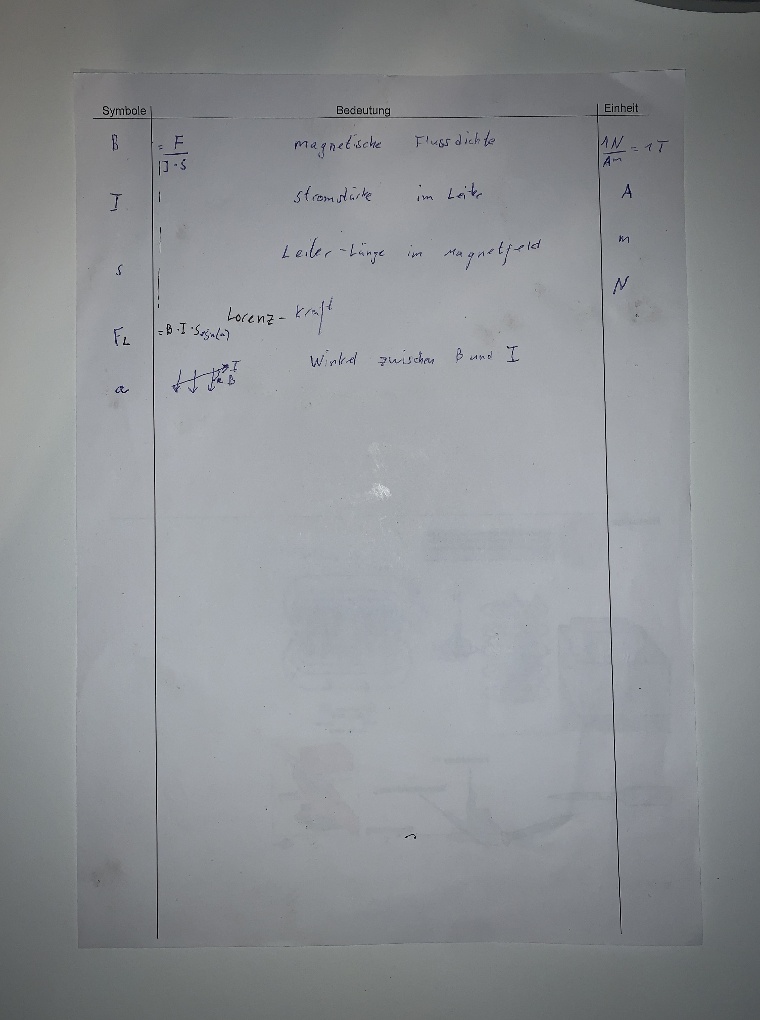 Symbole Bedeutung Einheit
B = F / I · s magnetische Flussdichte 1N / Am = 1T
I Stromstärke im Leiter A
s Leiter-Länge im Magnetfeld m
FL = B · I · s · sin(α) Lorenz-Kraft N
α I B Winkel zwischen B und I